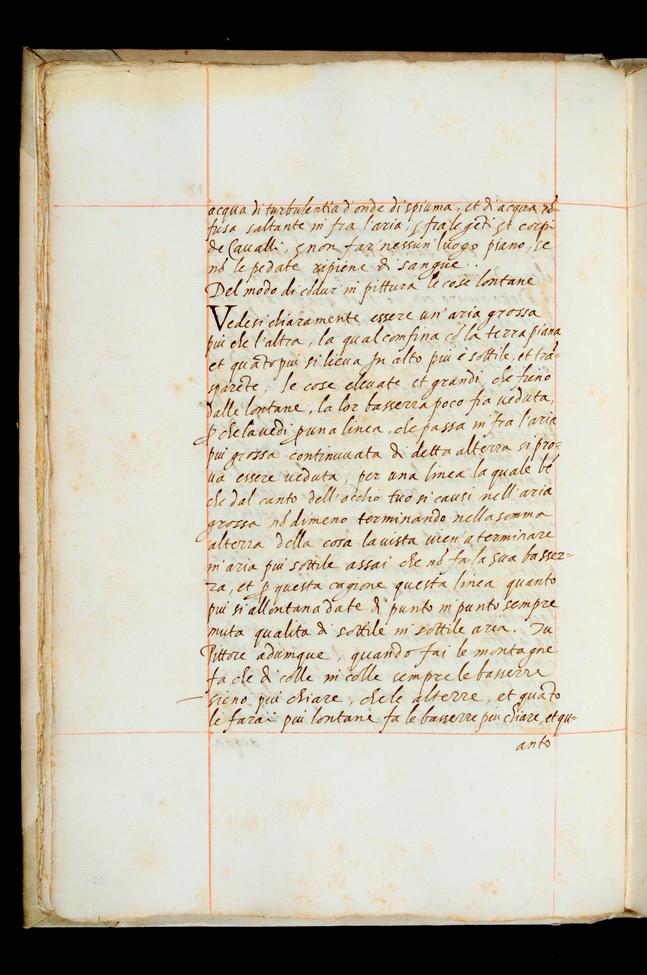 acqua di turbulentia d'onde di spiuma, et di acqua cō
fusa saltante in fra l'aria, ꝑ fra le gēti ꝑt corpi
de Cavalli, ꝑ non far nessun luogo piano, se
nō le pedate ripiene di sangue..
Del modo di cōdur in pittura le cose lontane
Vedesi chiaramente essere un' aria grossa
piu che l'altra, la qual confina cō la terra piana
et quāto piu si lieva In alto piu è sottile, et trā=
sparēte, le cose elevate et grandi, che fieno
dalle lontane, la lor basserra poco fia veduta,
ꝑ che la vedi ꝑ una linea, che passa in fra l'aria
piu grossa continuvata di detta alterra si pro=
va essere veduta, per una linea la quale bē
che dal canto dell'occhio tuo si causi nell' aria
grossa nō dimeno terminando nella somma
alterra della cosa la vista vien a terminare
in aria piu sottile assai che nō fa la sua basser=
ra, et ꝑ questa cagione questa linea quanto
piu si allontana da te di punto in punto sempre
muta qualita di sottile in sottile aria. Tu
Pittore adumque, quando fai le montagne
fa che di colle in colle sempre le basserre
sieno piu chiare, che le alterre, et quāto
le farai piu lontane fa le basserre piu chiare, et qu=
anto